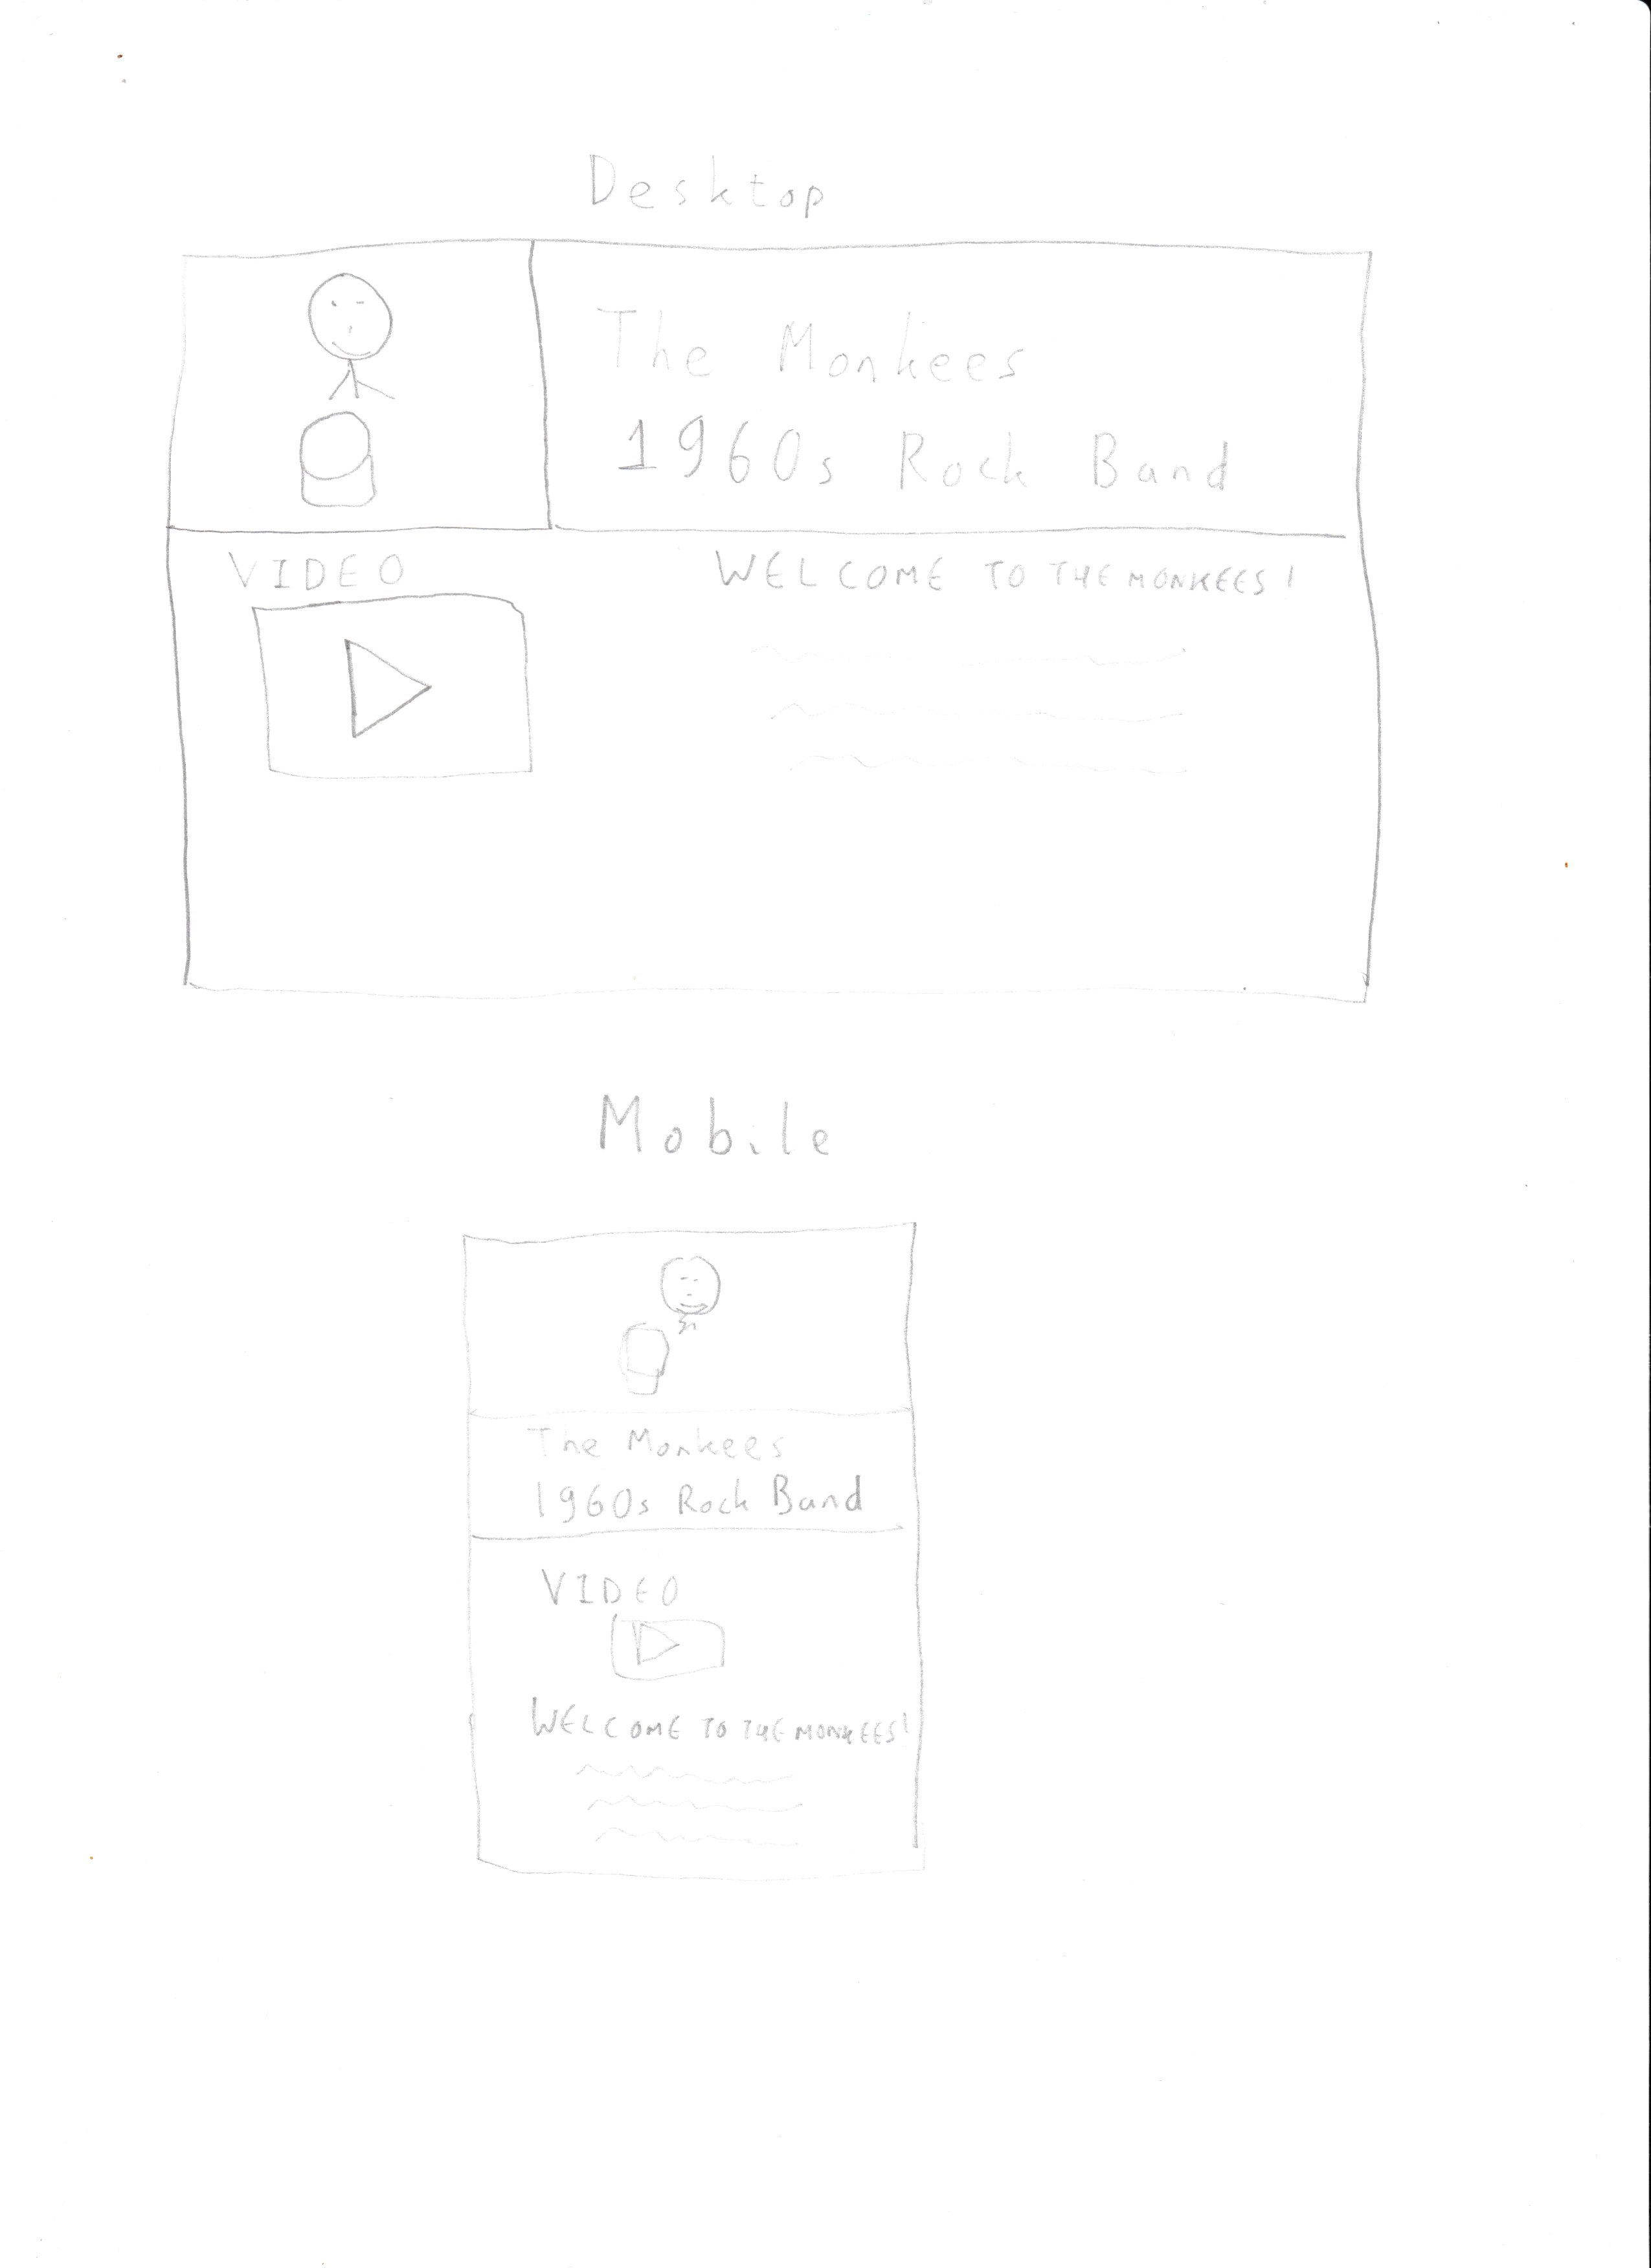 Desktop
The Monkees
1960s Rock Band
VIDEO
WELCOME TO THE MONKEES!
Mobile
The Monkees
1960s Rock Band
VIDEO
WELCOME TO THE MONKEES!